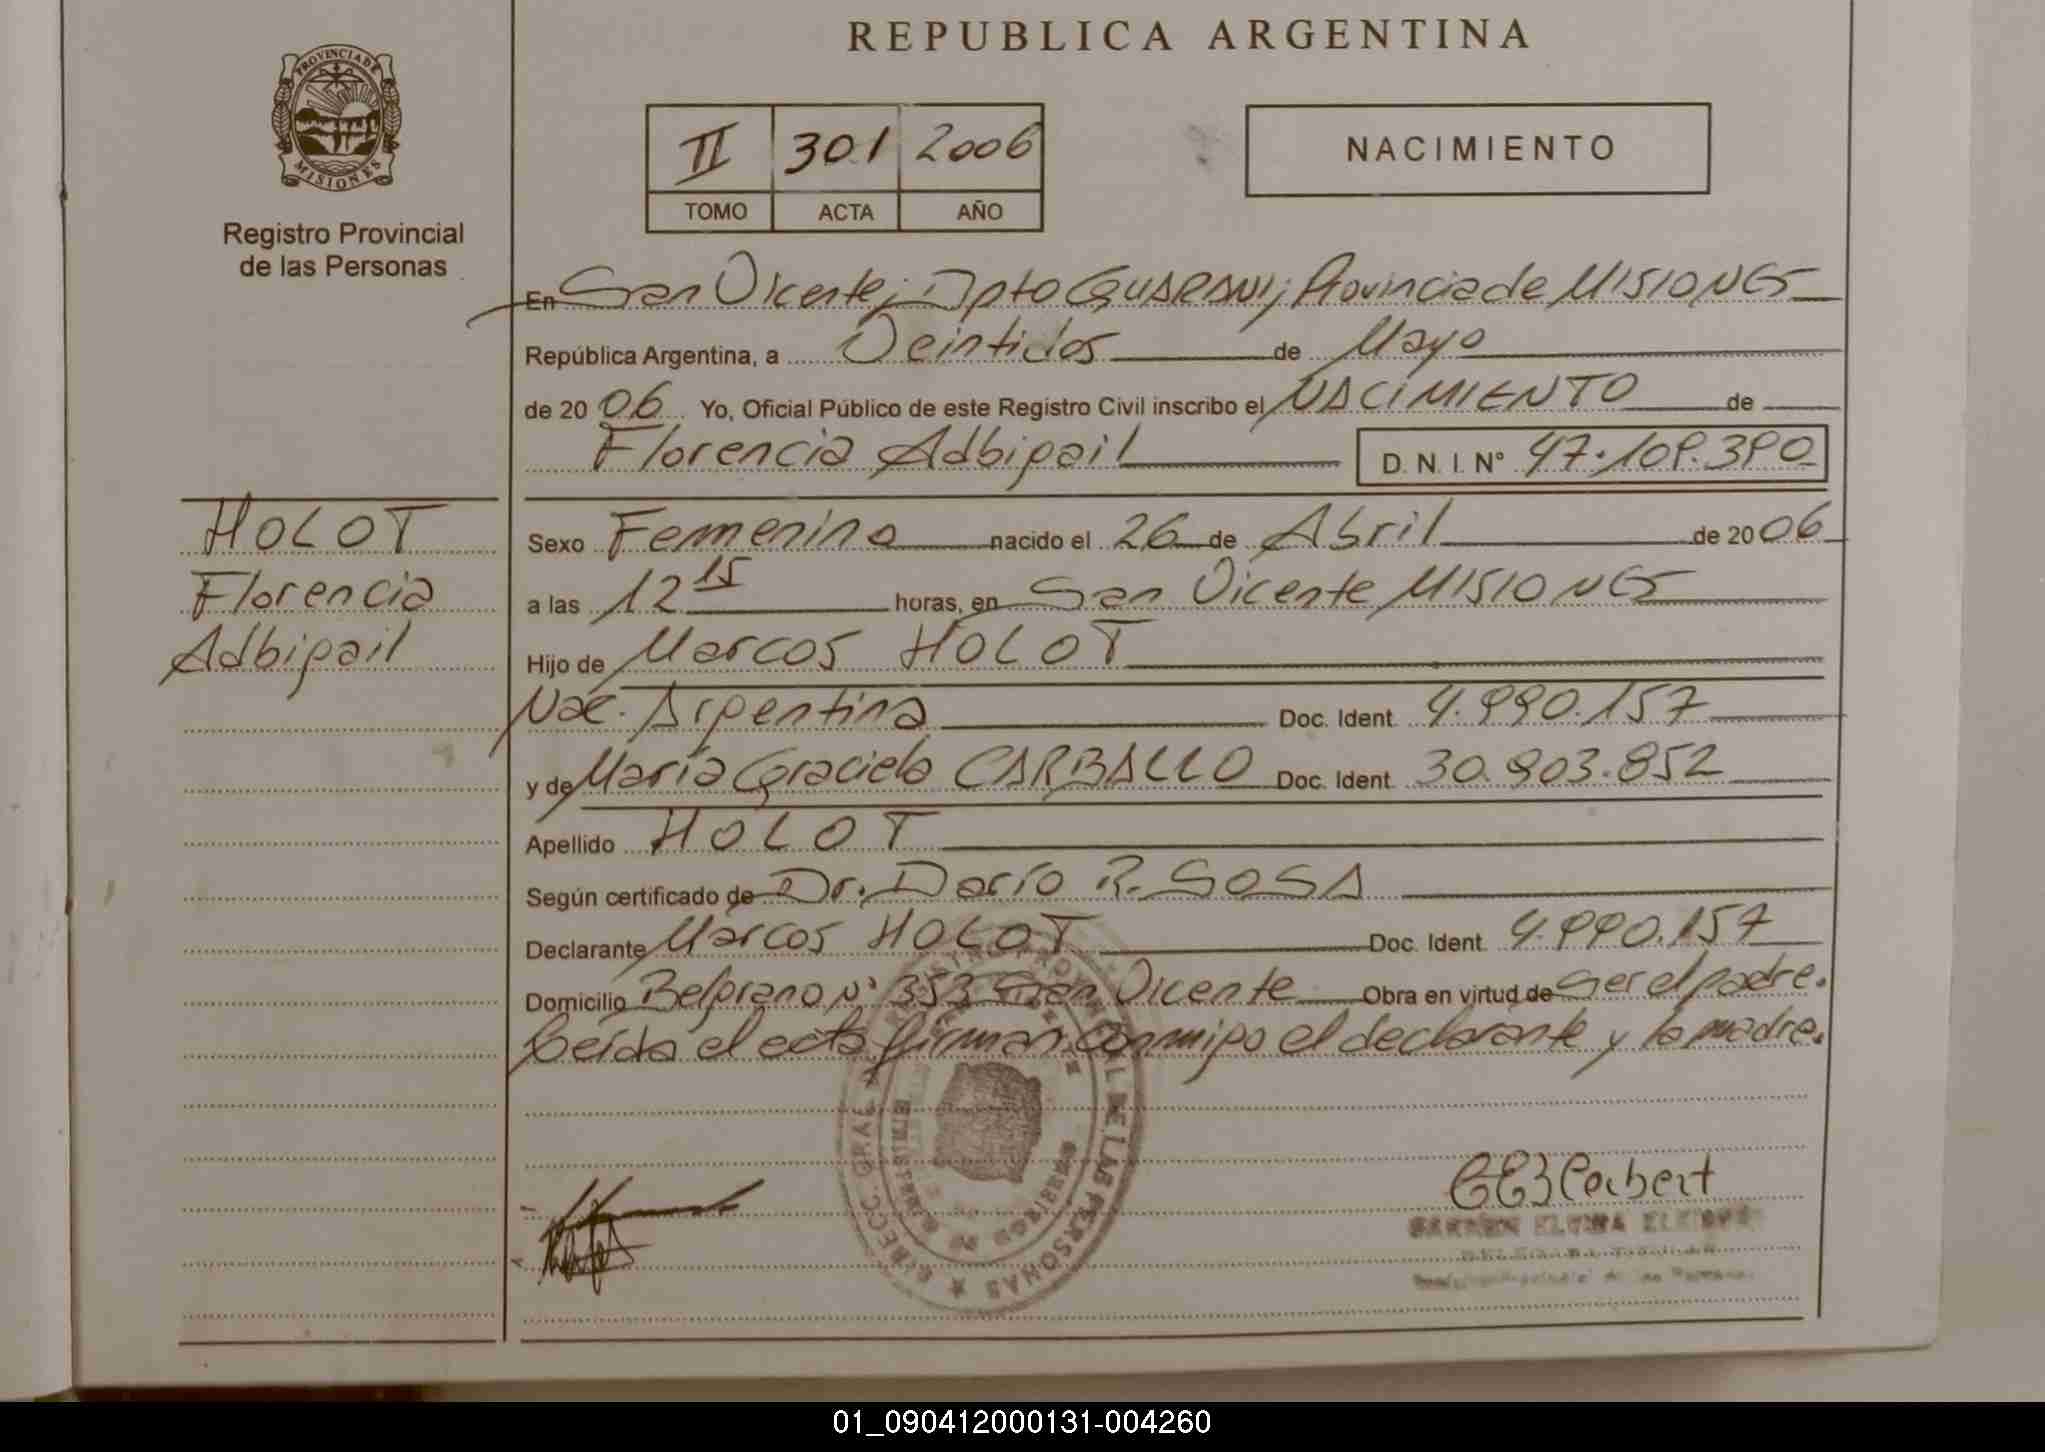 REPUBLICA ARGENTINA
PROVINCIA DE MISIONES
Registro Provincial
de las Personas
II 301 2006
TOMO ACTA AÑO
NACIMIENTO
En San Vicente, Dpto GUARANI, Provincia de MISIONES
República Argentina, a Veintidos de Mayo
de 20 06 Yo, Oficial Público de este Registro Civil inscribo el NACIMIENTO de
Florencia Adbigail D. N. I. Nº 47.109.390
HOLOT
Florencia
Adbigail
Sexo Femenino nacido el 26 de Abril de 20 06
a las 12 15 horas, en San Vicente MISIONES
Hijo de Marcos HOLOT
Nac. Argentina Doc. Ident. 4.990.157
y de María Graciela CARBALLO Doc. Ident. 30.903.852
Apellido HOLOT
Según certificado de Dr. Darío R. SOSA
Declarante Marcos HOLOT Doc. Ident. 4.990.157
Domicilio Belgrano Nº 353 San Vicente Obra en virtud de ser el padre.
Leída el acta firman conmigo el declarante y la madre.
DE LAS PERSONAS
01_090412000131-004260